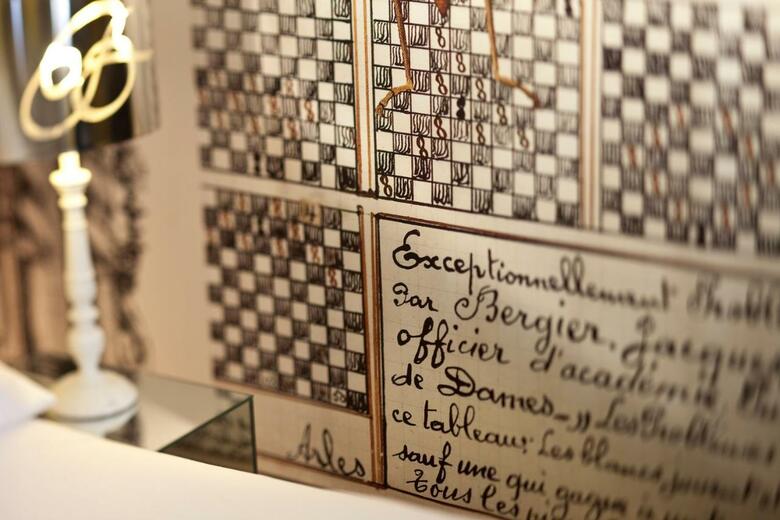 Exceptionnellement
Par Bergier, Jacque
officier d'académie
de Dames_ ,, Les
ce tableau: Les blancs jouent
sauf une qui gagne
Tous les
Arles